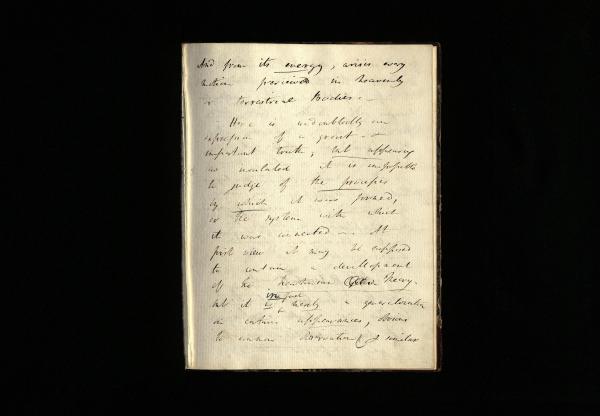 And from its energy, arises every
motion perceived in heavenly
or terrestrial Bodies. –
Here is undoubtedly an
expression of a great &
important truth, but appearing
as isolated it is impossible
to judge of the process
by which it was formed,
or the system with which
it was connected – At
first view it may be supposed
to contain a development
of the Newtonian Theory.
but it is in fact merely a generalization
on certain appearances, known
to common observation & similar